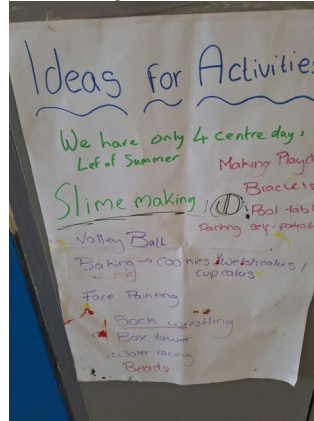 Ideas for Activities
We have only 4 centre days
Lef of Summer
Making Playd
Slime making
Bracelets
Pool tabl
Painting self-portrait
Valley Ball
Baking → Cookies / welshcakes /
cupcakes
Face Painting
Sock wrestling
Box tower
Water racing
Beads